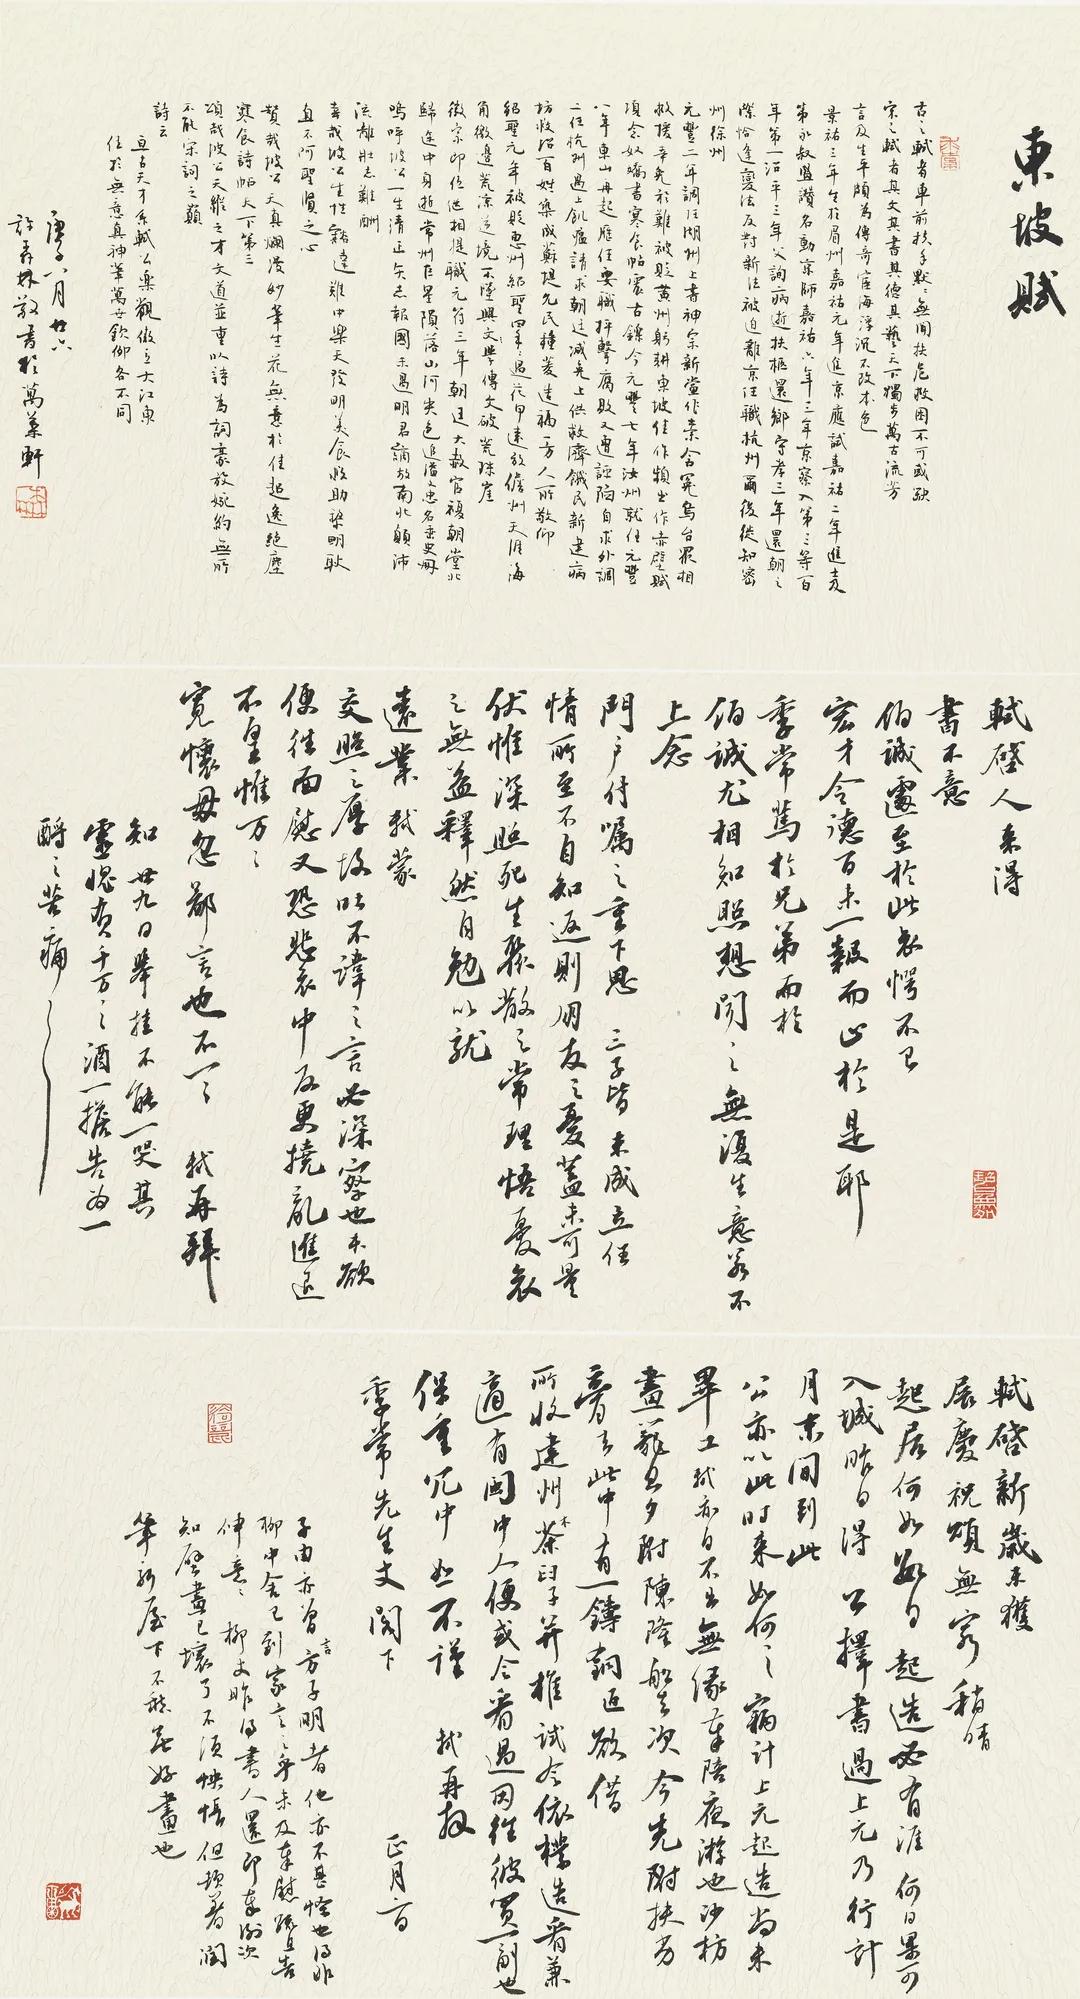 東坡賦
古之軾者車前扶手默默無聞扶危救困不可或缺
宋之軾者其文其書其德其藝天下獨步萬古流芳
言及生平頗為傳奇宦海浮沉不改本色
景祐三年生於眉州嘉祐元年進京應試嘉祐二年進士
第永叔盛讚名動京師嘉祐六年三年京察入第三等百
年第一治平三年父詢病逝扶柩還鄉守孝三年還朝之
際恰逢變法反對新法被迫離京任職杭州爾後從知密
州徐州
元豐二年調任湖州上書神宗新黨作祟含冤烏台眾相
救援幸免於難被貶黃州躬耕東坡佳作頻出作赤壁賦
項念奴嬌書寒食帖震古鑠今元豐七年汝州就任元豐
八年東山再起歷任要職抨擊腐敗又遭誣陷自求外調
二任杭州遇上飢瘟請求朝廷減免上供救濟餓民新建病
坊收治百姓築成蘇堤先民種菱造福一方人所敬仰
紹聖元年被貶惠州紹聖四年過花甲遠放儋州天涯海
角徼邊荒涼逆境不墮興文學傳文破荒珠崖
徽宗即位他相提職元符三年朝廷大赦官複朝堂北
歸途中身逝常州巨星隕落山河失色追謚文忠名垂史冊
嗚呼坡公一生清正矢志報國未遇明君謫放南北顛沛
流離壯志難酬
幸哉坡公生性豁達難中樂天發明美食收助黎明耿
直不阿聖賢之心
贊哉坡公天真爛漫妙筆生花無意於佳超逸絕塵
寒食詩帖天下第三
頌哉坡公天縱之才文道並重以詩為詞豪放婉約無所
不能宋詞之巔
詩云
亘古天才系軾公樂觀傲立大江東
任於無意真神筆萬世欽仰各不同
庚子八月廿六
許堯林敬書於萬葉軒
軾啓人來得
書不意
伯誠遽至於此哀愕不已
宏才令德百未一報而止於是耶
季常篤於兄弟而於
伯誠尤相知照想聞之無復生意若不
上念
門戶付囑之重下思三子皆未成立任
情所至不自知返則朋友之憂蓋未可量
伏惟深照死生聚散之常理悟憂哀
之無益釋然自勉以就
遠業軾蒙
交照之厚故吐不諱之言必深察也本欲
便往面慰又恐悲哀中反更撓亂進退
不皇惟万万
寬懷毋忽鄙言也不一一軾再拜
知廿九日舉挂不能一哭其
靈愧負千万千万酒一擔告為一
酹之苦痛
軾啓新歲未獲
展慶祝頌無窮稍晴
起居何如數日起造必有涯何日果可
入城昨日得公擇書過上元乃行計
月末間到此
公亦以此時來如何如何竊計上元起造尚未
畢工軾亦自不出無緣奉陪夜遊也沙枋
畫籠旦夕附陳隆船去次今先附扶劣
膏去此中有一鑄銅匠欲借
所收建州木茶臼子并椎試令依樣造看兼
適有閩中人便或令看過因往彼買一副也
保重冗中恕不謹軾再拜
季常先生丈閣下正月二日
子由亦曾言方子明者他亦不甚怪也得非
柳中舍已到家言之乎未及奉慰疏且告
伸意伸意柳丈昨得書人還即奉謝次
知壁畫已壞了不須怏悵但頓著潤
筆新屋下不愁無好畫也